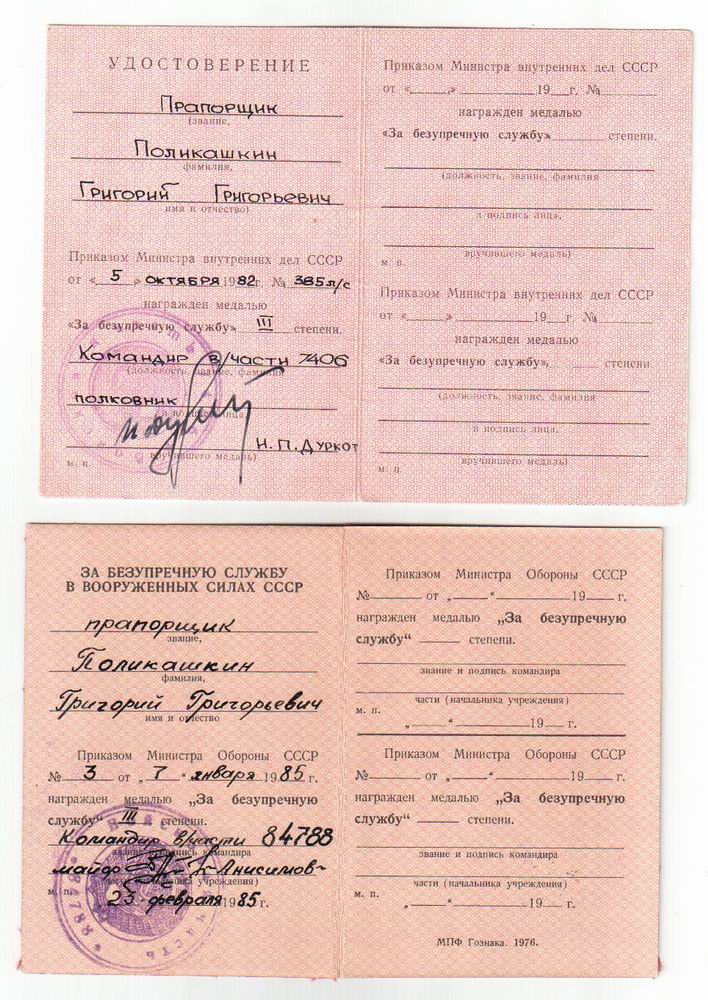 УДОСТОВЕРЕНИЕ
Прапорщик
(звание,
Поликашкин
фамилия,
Григорий Григорьевич
имя и отчество)
Приказом Министра внутренних дел СССР
от «5» октября 1982г. № 385л/с
награжден медалью
«За безупречную службу» III степени.
Командир в/части 7406
(должность, звание, фамилия
полковник
и подпись лица,
Н.П.Дуркот
вручившего медаль)
м. п.
Приказом Министра внутренних дел СССР
от «____» ________ 19__г. №______
награжден медалью
«За безупречную службу»______ степени.
(должность, звание, фамилия
и подпись лица,
вручившего медаль)
м. п.
Приказом Министра внутренних дел СССР
от «____» ________ 19__г. №______
награжден медалью
«За безупречную службу»______ степени.
(должность, звание, фамилия
и подпись лица,
вручившего медаль)
м. п.
ЗА БЕЗУПРЕЧНУЮ СЛУЖБУ
В ВООРУЖЕННЫХ СИЛАХ СССР
прапорщик
звание,
Поликашкин
фамилия,
Григорий Григорьевич
имя и отчество
Приказом Министра Обороны СССР
№ 3 от „7“ января 1985 г.
награжден медалью „За безупречную
службу“ III степени.
Командир в/части 84788
звание и подпись командира
майор Анисимов
части (начальника учреждения)
м. п. 23 февраля 1985 г.
Приказом Министра Обороны СССР
№______ от „____“ ________ 19__ г.
награжден медалью „За безупречную
службу“ _____ степени.
звание и подпись командира
части (начальника учреждения)
м. п.
„____“ ________ 19__ г.
Приказом Министра Обороны СССР
№______ от „____“ ________ 19__ г.
награжден медалью „За безупречную
службу“ _____ степени.
звание и подпись командира
части (начальника учреждения)
м. п.
„____“ ________ 19__ г.
МПФ Гознака. 1976.